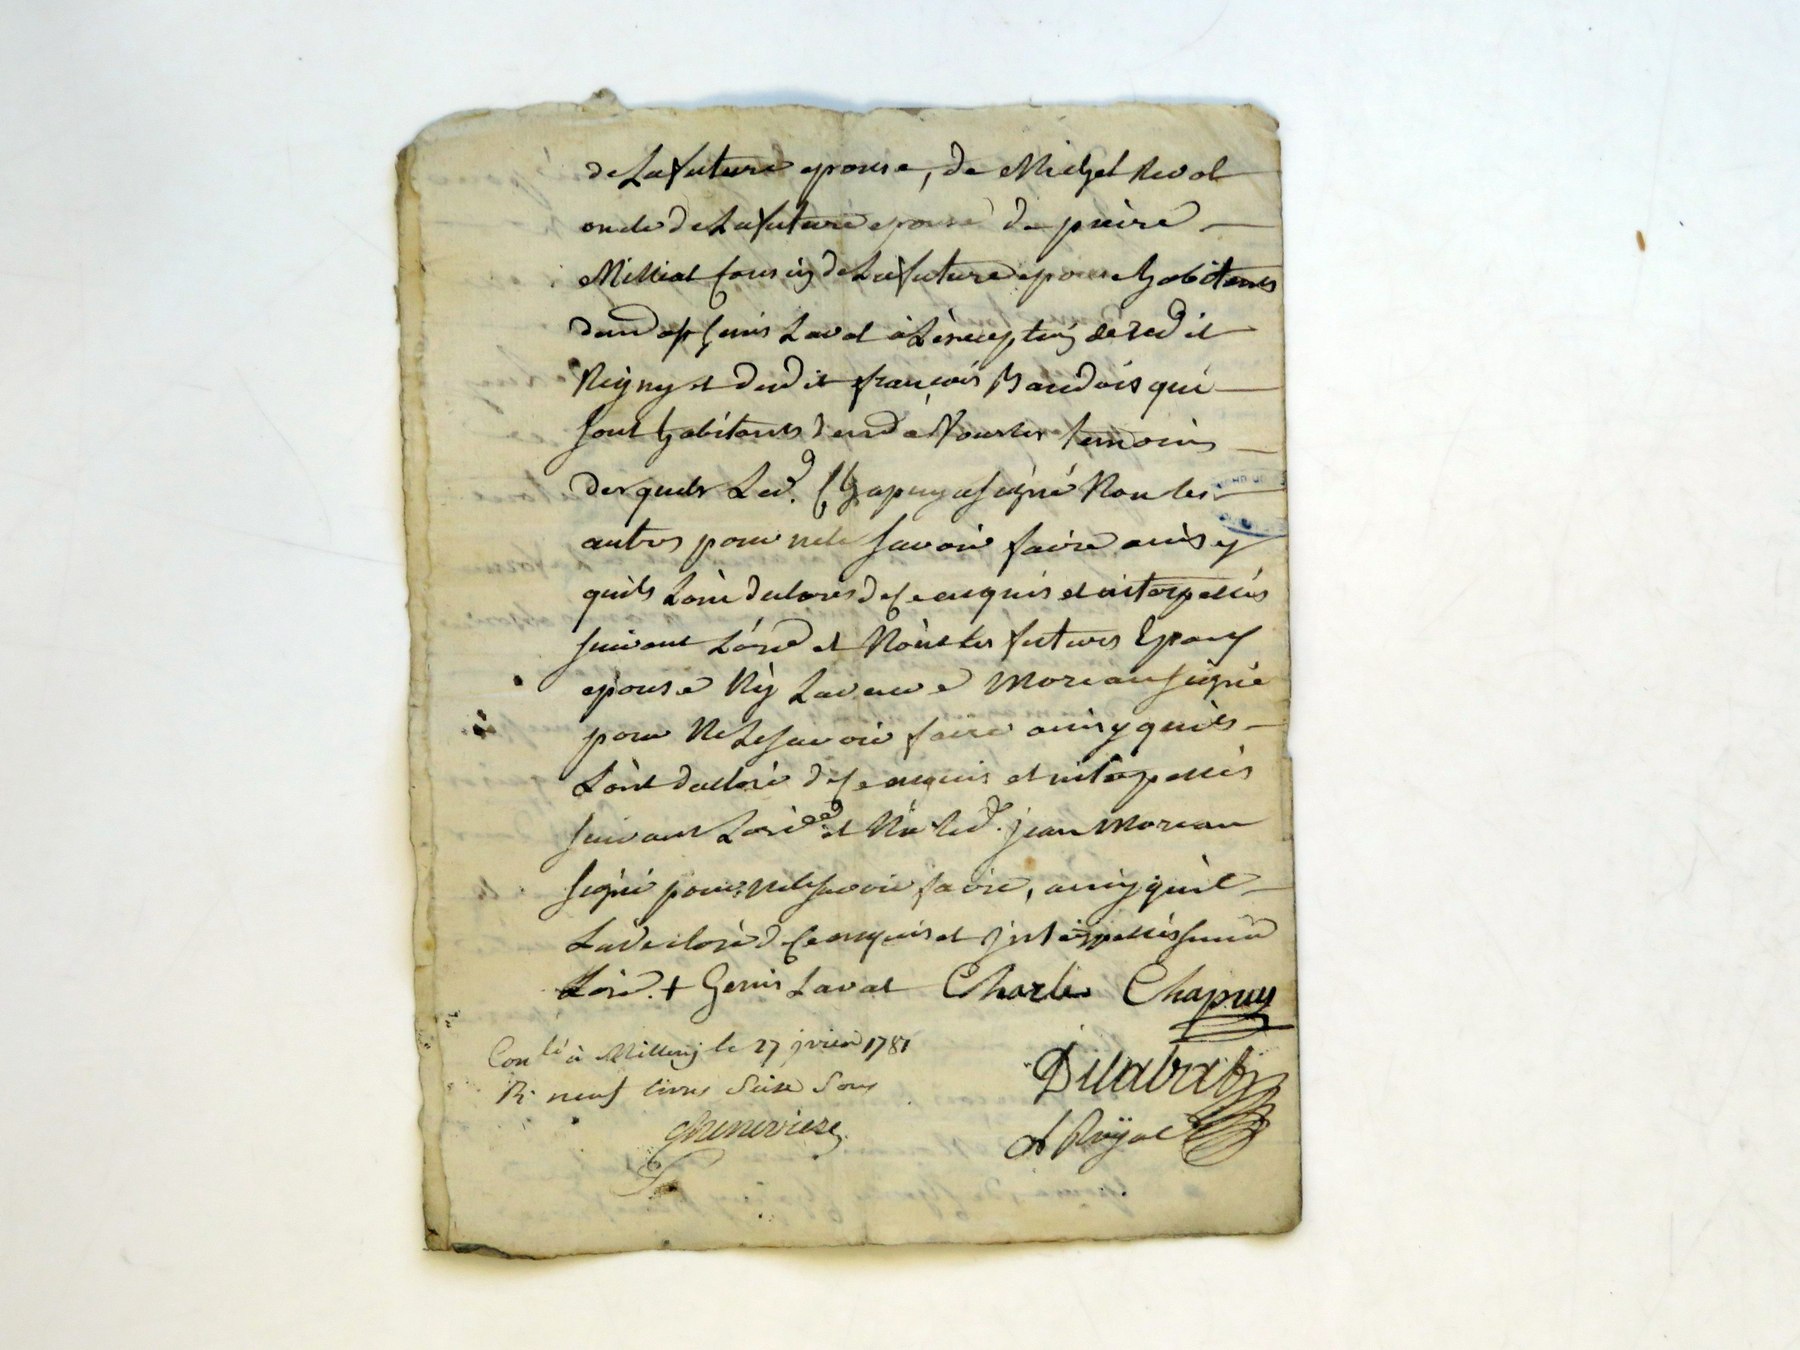 de La future epouse, de Michel Revol
oncle de La future epouse de pierre
Milliat Cousin de La future epouse habitants
dud. st Genis Laval à Lexception dudit
Reyny et dudit francois Baudois qui
sont habitants dud. temoins
desquels Led. Chapuy a signé Non les
autres pour ne le savoir faire ainsy
quils Lont declares de ce enquis et interpellés
suivant Lord. et Nont les futures Epoux
epouse Ny La veuve Moreau signé
pour Ne Le savoir faire ainsy quils
Lont declaré de ce enquis et interpellés
suivant Lord. et Na led. jean Moreau
signé pour ne le savoir faire, ainsy quil
La declaré de ce enquis et interpellé suivan
Lord. + Genis Laval Charle Chapuy
Conlé à Millery le 27 jvier 1781
R. neuf livres Seise Sous
Delabalt
Chenevieze